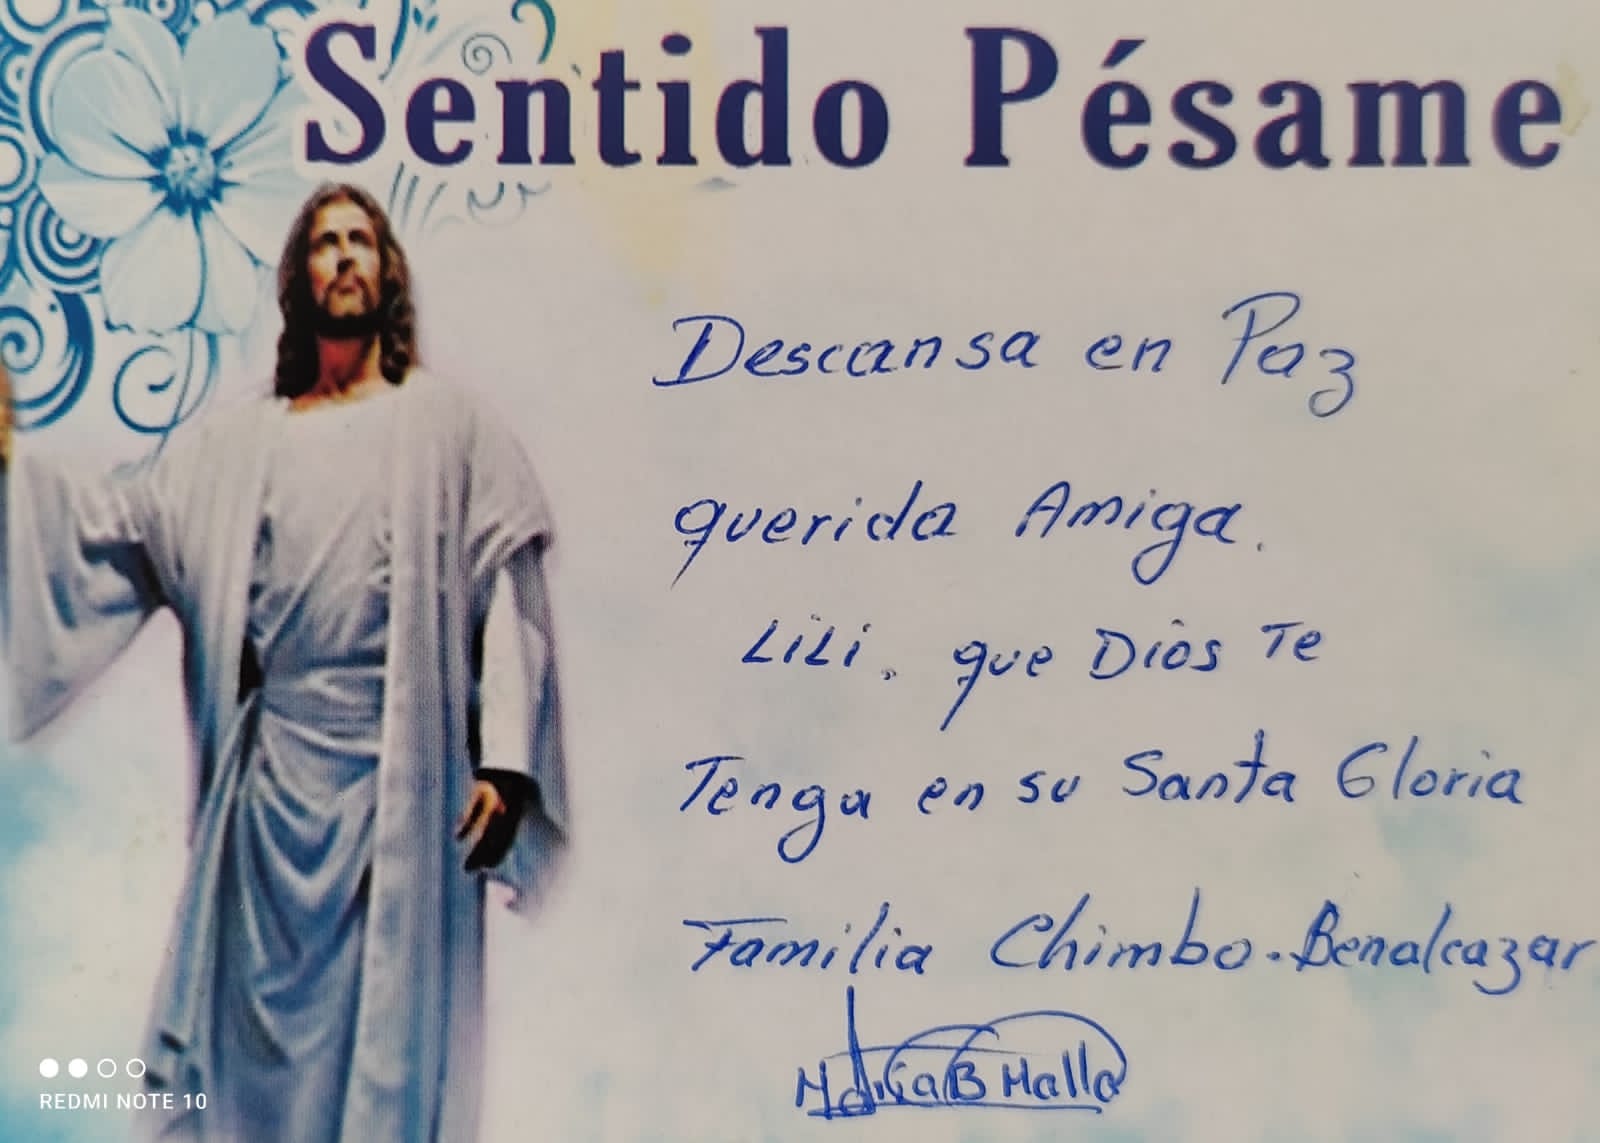 Sentido Pésame
Descansa en Paz
querida Amiga.
LiLi. que Dios Te
Tenga en su Santa Gloria
Familia Chimbo-Benalcazar
B Malla
REDMI NOTE 10